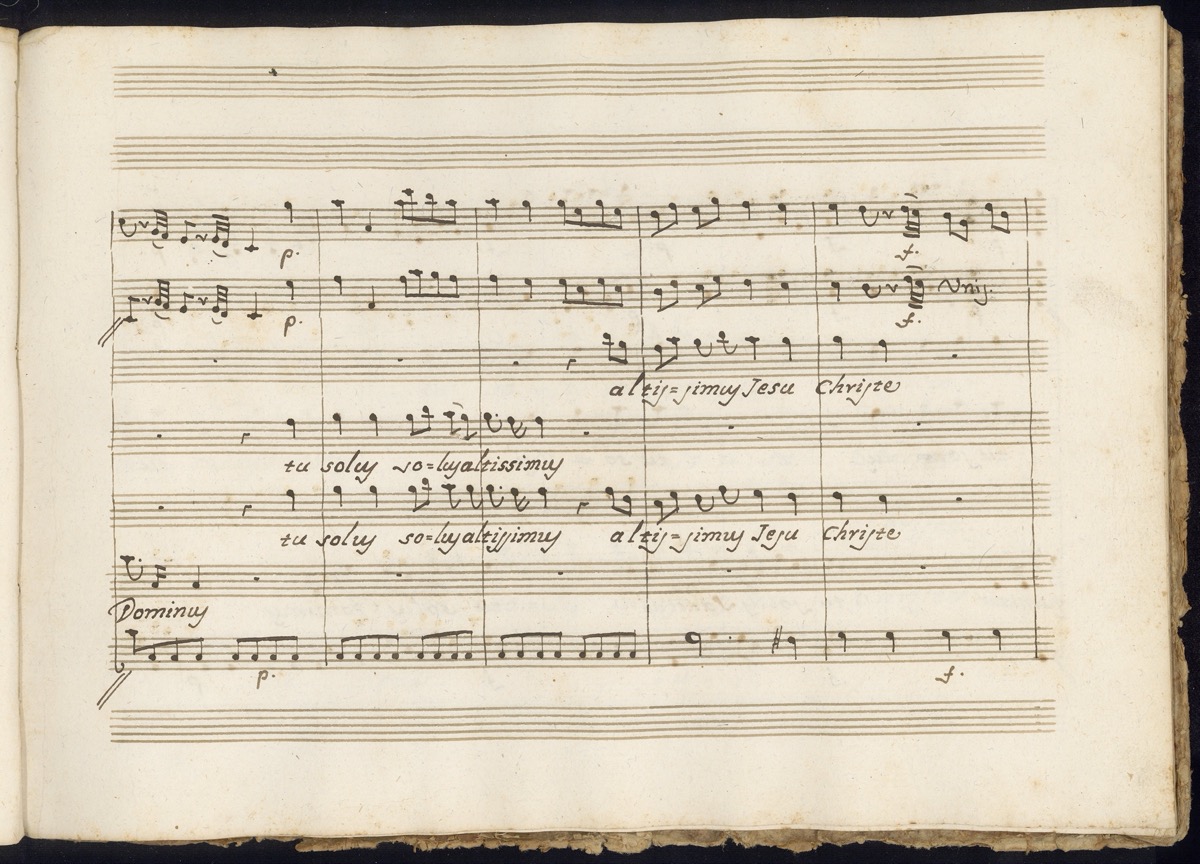 p. f.
p. f. Unis.
altis=simus Jesu Christe
tu solus so=lus altissimus
tu solus so=lus altissimus altis=simus Jesu Christe
Dominus
p. f.